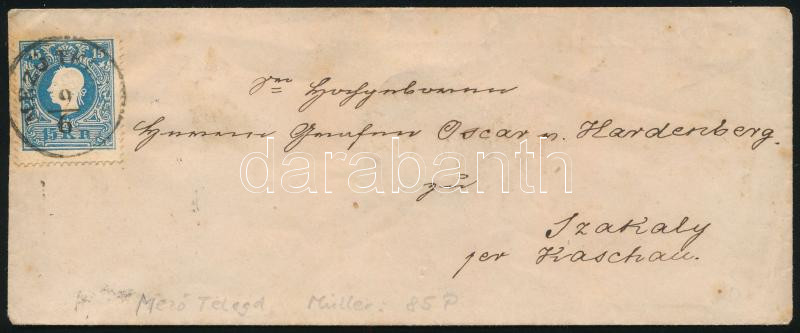 15 15
MEZŐ TE
9
6
15 Kr
Sr Hochgeboren
Herrn Grafen Oscar v. Hardenberg.
zu
Szakaly
per Kaschau.
darabanth
Mező Telegd Müller: 85 P